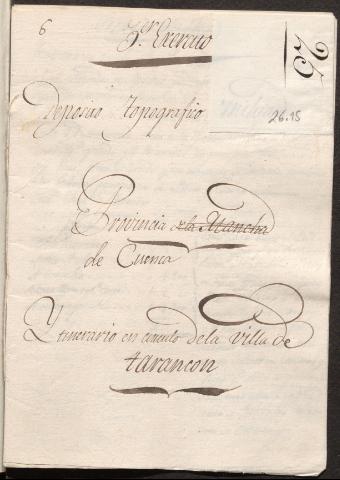 6
3.er Exercito
25
Deposito topografico
26.15
Provincia de la Mancha
de Cuenca
Ytinerario en circulo de la Villa de
tarancon